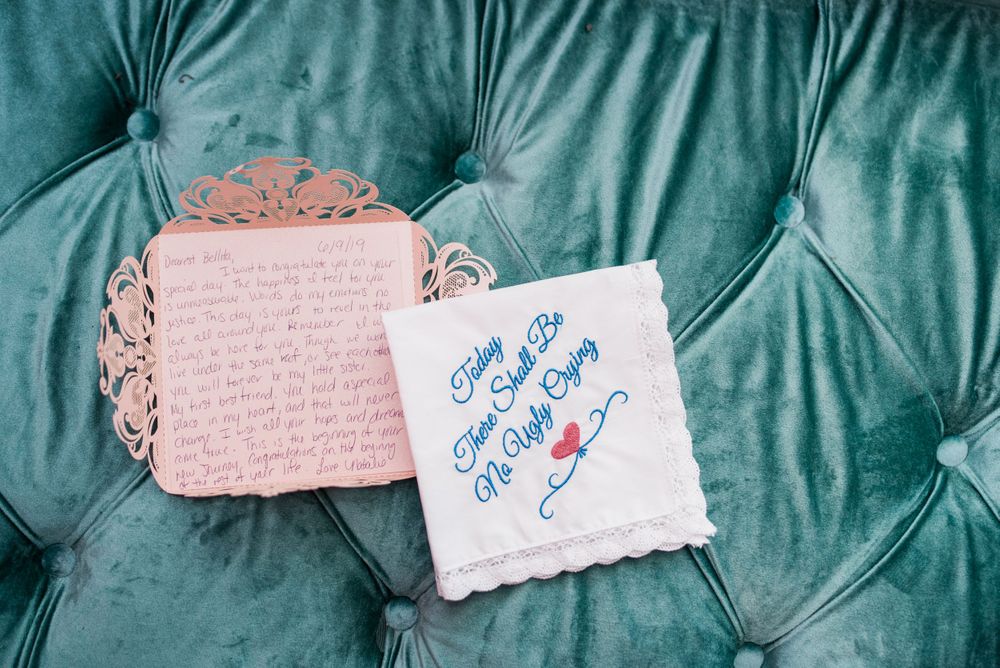 6/9/19
Dearest Bellita,
I want to congratulate you on your
special day. The happiness I feel for you
is unmeasurable. Words do my emotions no
justice. This day is yours to revel in the
love all around you. Remember I'll
always be here for you. Though we won't
live under the same roof, or see each other
you will forever be my little sister.
My first best friend. You hold a special
place in my heart, and that will never
change. I wish all your hopes and dreams
come true. This is the beginning of your
new Journey, Congratulations on the beginning
of the rest of your life. Love Natalie
Today
There Shall Be
No Ugly Crying